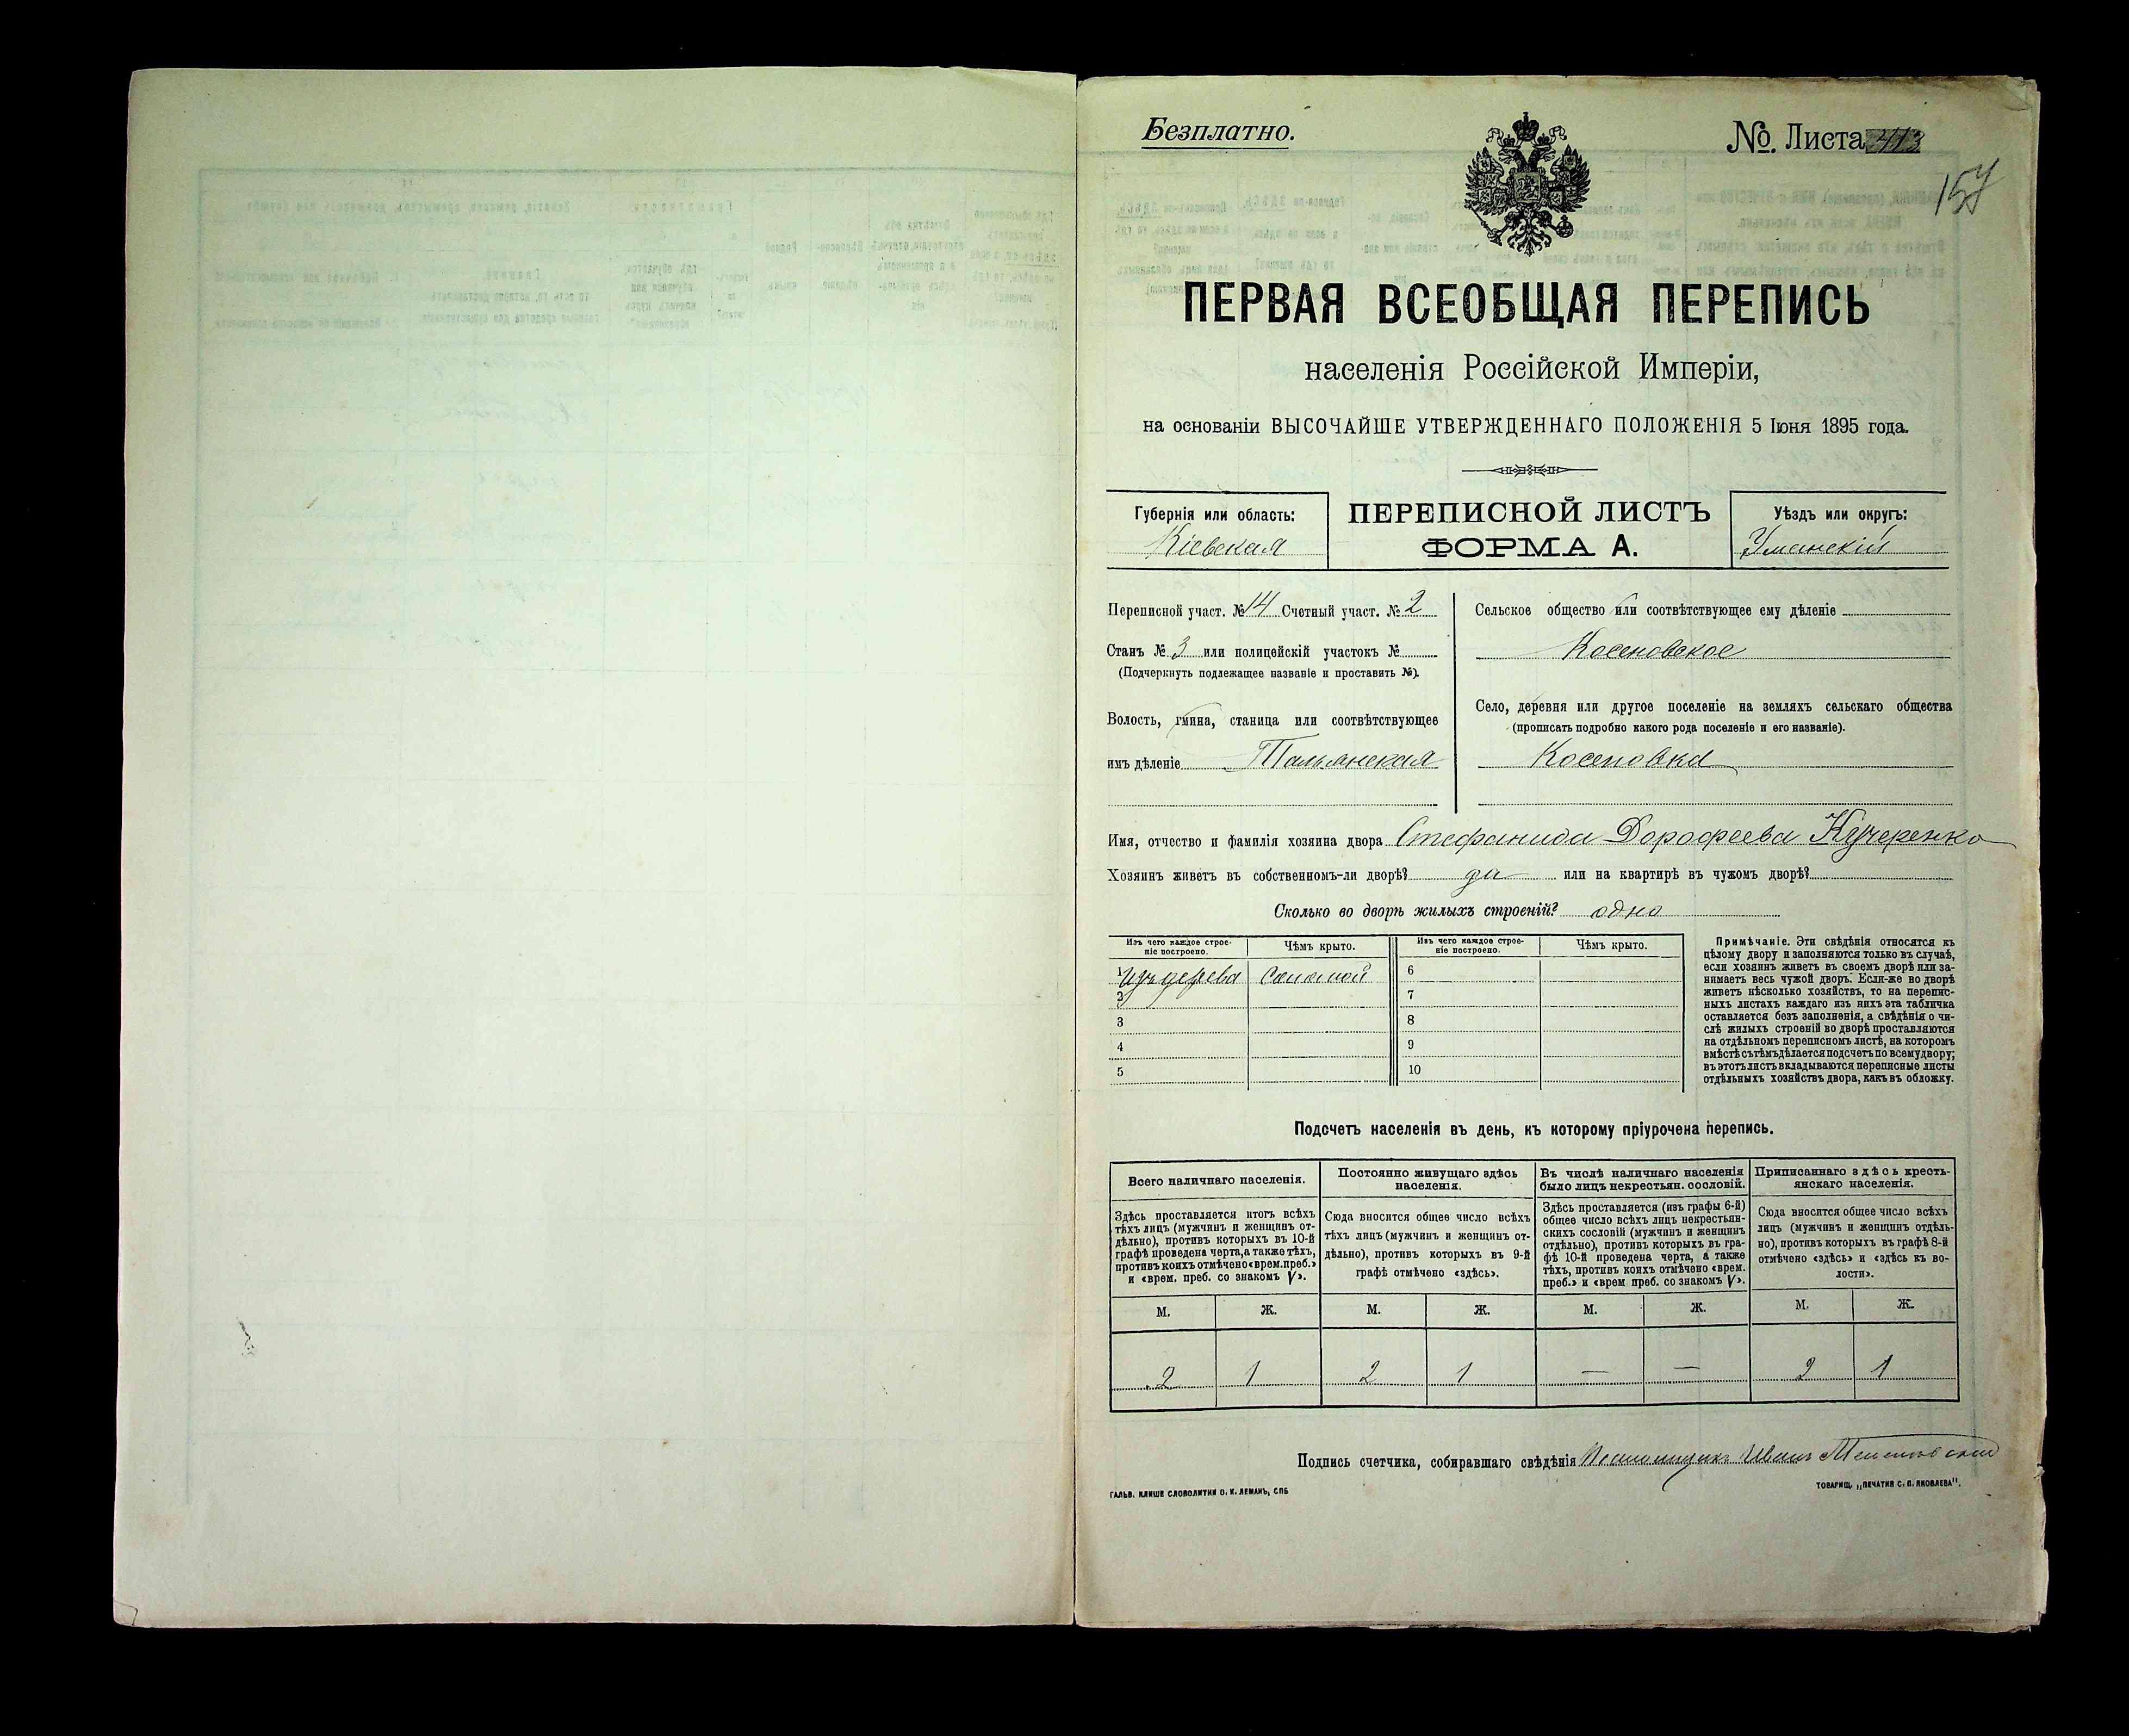 Безплатно.
№. Листа 413
157
ПЕРВАЯ ВСЕОБЩАЯ ПЕРЕПИСЬ
населенія Россійской Имперіи,
на основаніи ВЫСОЧАЙШЕ УТВЕРЖДЕННАГО ПОЛОЖЕНІЯ 5 Іюня 1895 года.
Губернія или область:
Кіевская
ПЕРЕПИСНОЙ ЛИСТЪ
ФОРМА А.
Уѣздъ или округъ:
Уманскій
Переписной участ. № 14 Счетный участ. № 2
Станъ № 3 или полицейскій участокъ №
(Подчеркнуть подлежащее названіе и проставить №).
Волость, гмина, станица или соотвѣтствующее
имъ дѣленіе Тальянская
Сельское общество или соотвѣтствующее ему дѣленіе
Косеновское
Село, деревня или другое поселеніе на земляхъ сельскаго общества
(прописать подробно какого рода поселеніе и его названіе).
Косеновка
Имя, отчество и фамилія хозяина двора Стефанида Дорофеева Кучеренко
Хозяинъ живетъ въ собственномъ-ли дворѣ? да или на квартирѣ въ чужомъ дворѣ?
Сколько во дворѣ жилыхъ строеній? одно
Изъ чего каждое строе-
ніе построено.
Чѣмъ крыто.
Изъ чего каждое строе-
ніе построено.
Чѣмъ крыто.
1 Изъ дерева Соломой
2
3
4
5
6
7
8
9
10
Примѣчаніе. Эти свѣдѣнія относятся къ
цѣлому двору и заполняются только въ случаѣ,
если хозяинъ живетъ въ своемъ дворѣ или за-
нимаетъ весь чужой дворъ. Если-же во дворѣ
живетъ нѣсколько хозяйствъ, то на перепис-
ныхъ листахъ каждаго изъ нихъ эта табличка
оставляется безъ заполненія, а свѣдѣнія о чи-
слѣ жилыхъ строеній во дворѣ проставляются
на отдѣльномъ переписномъ листѣ, на которомъ
вмѣстѣ съ тѣмъ дѣлается подсчетъ по всему двору;
въ этотъ листъ вкладываются переписные листы
отдѣльныхъ хозяйствъ двора, какъ въ обложку.
Подсчетъ населенія въ день, къ которому пріурочена перепись.
Всего наличнаго населенія.
Здѣсь проставляется итогъ всѣхъ
тѣхъ лицъ (мужчинъ и женщинъ от-
дѣльно), противъ которыхъ въ 10-й
графѣ проведена черта, а также тѣхъ,
противъ коихъ отмѣчено «врем. преб.»
и «врем. преб. со знакомъ V».
Постоянно живущаго здѣсь
населенія.
Сюда вносится общее число всѣхъ
тѣхъ лицъ (мужчинъ и женщинъ от-
дѣльно), противъ которыхъ въ 9-й
графѣ отмѣчено «здѣсь».
Въ числѣ наличнаго населенія
было лицъ некрестьян. сословій.
Здѣсь проставляется (изъ графы 6-й)
общее число всѣхъ лицъ некрестьян-
скихъ сословій (мужчинъ и женщинъ
отдѣльно), противъ которыхъ въ гра-
фѣ 10-й проведена черта, а также
тѣхъ, противъ коихъ отмѣчено «врем.
преб.» и «врем преб. со знакомъ V».
Приписаннаго здѣсь кресть-
янскаго населенія.
Сюда вносится общее число всѣхъ
лицъ (мужчинъ и женщинъ отдѣль-
но), противъ которыхъ въ графѣ 8-й
отмѣчено «здѣсь» и «здѣсь къ во-
лости».
М. Ж. М. Ж. М. Ж. М. Ж.
2 1 2 1 — — 2 1
Подпись счетчика, собиравшаго свѣдѣнія Иванъ
ГАЛЬВ. КЛИШЕ СЛОВОЛИТНИ О. И. ЛЕМАНЪ, СПБ
ТОВАРИЩ. „ПЕЧАТНЯ С. П. ЯКОВЛЕВА".